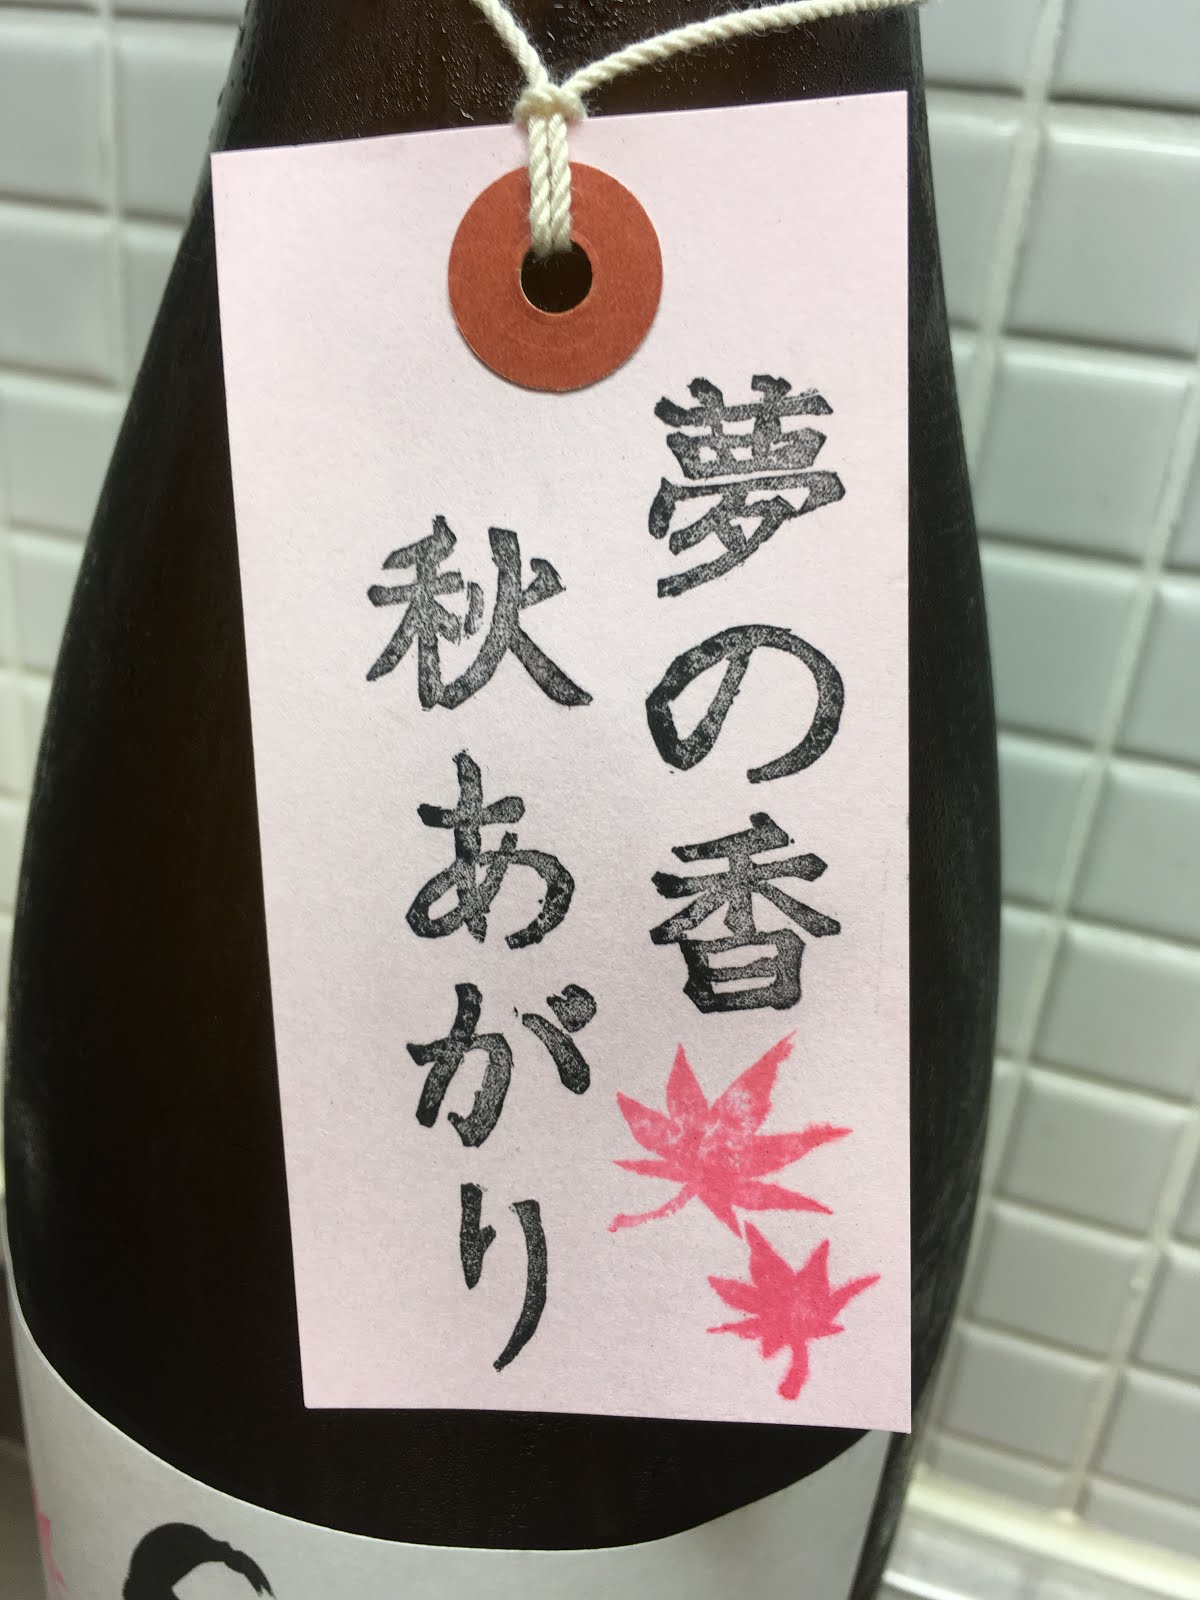 夢の香
秋あがり